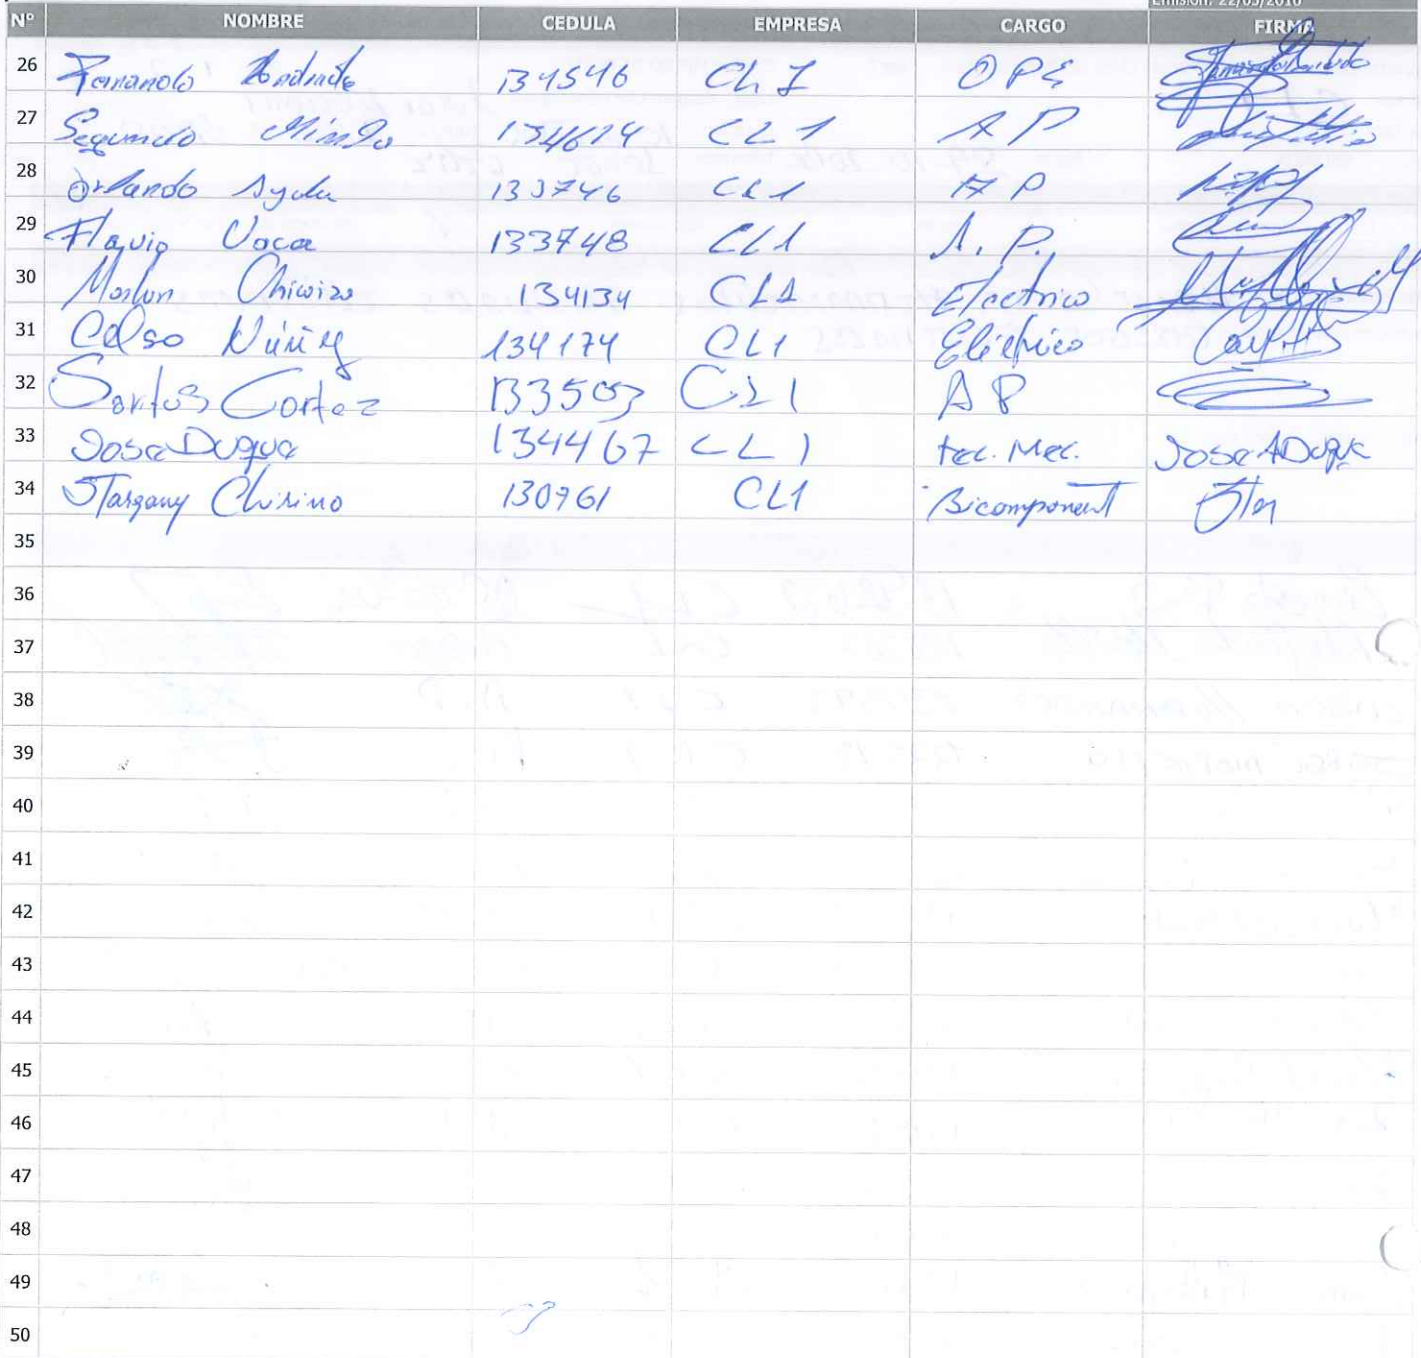 Emisión: 22/05/2016
Nº NOMBRE CEDULA EMPRESA CARGO FIRMA
26 Fernando Andrade 134546 CL1 OPE
27 Segundo Mindo 134674 CL1 AP
28 Orlando Ayala 133746 CL1 AP
29 Flavio Vaca 133748 CL1 A.P.
30 Marlon Chiwizo 134134 CL1 Electrico
31 Celso Núñez 134174 CL1 Eléctrico
32 Santos Cortez 133503 CL1 AP
33 Jose Duque 134467 CL1 tec. Mec. Jose A Duque
34 Stargany Chirino 130761 CL1 Bicomponent
35
36
37
38
39
40
41
42
43
44
45
46
47
48
49
50